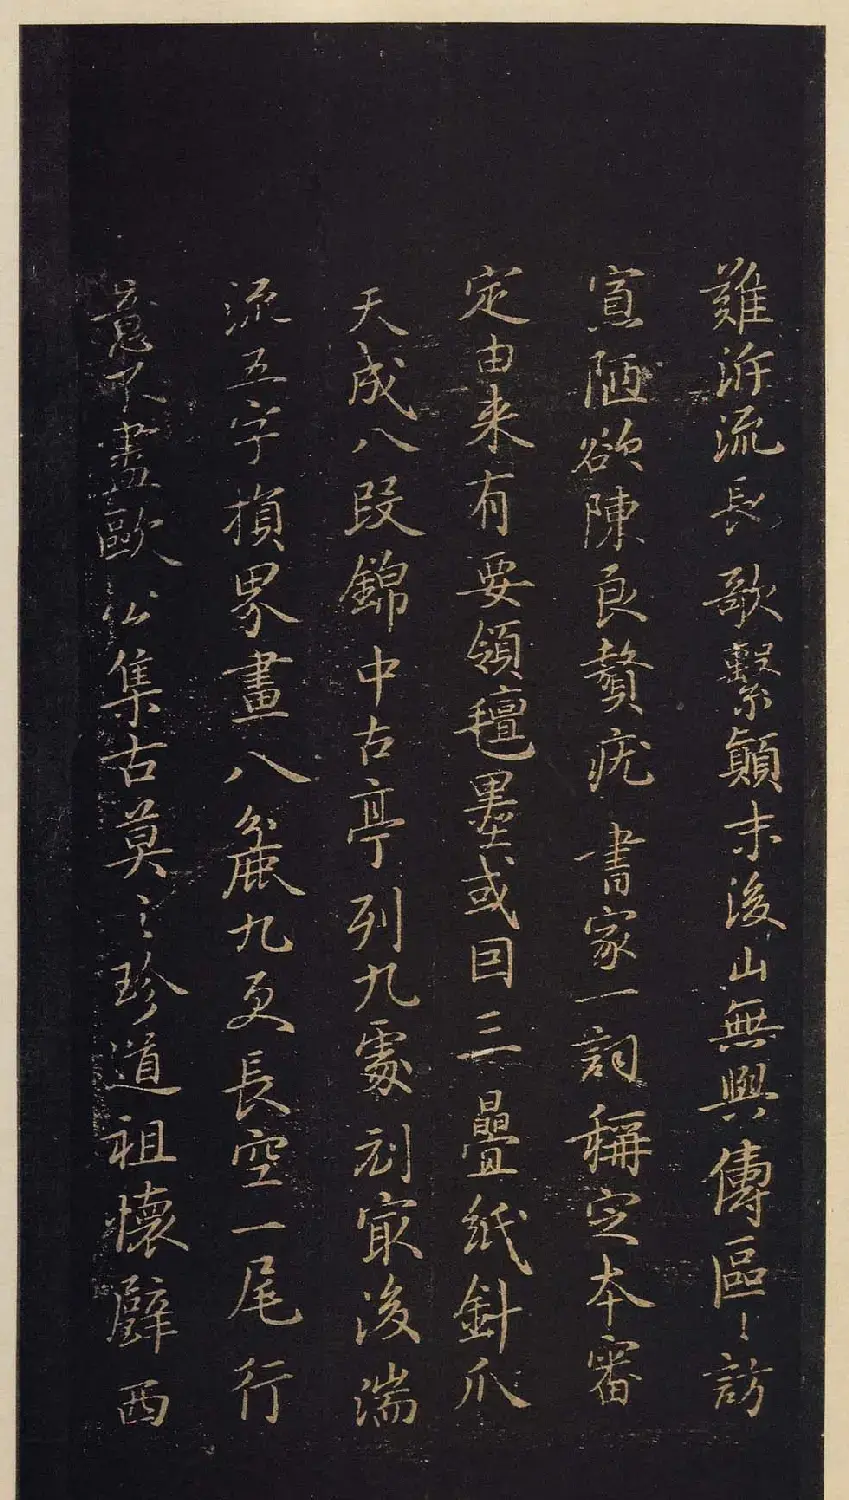 難泝流長歌繫顛末後山無與傳區〻訪
寡陋欲陳良贅疣書家一詞稱定本審
定由来有要領氊墨或曰三疊紙針爪
天成八段錦中古亭列九處刓㝡後湍
流五字損界畫八麄九更長空一尾行
意不盡歐公集古莫之珍道祖懷璧西